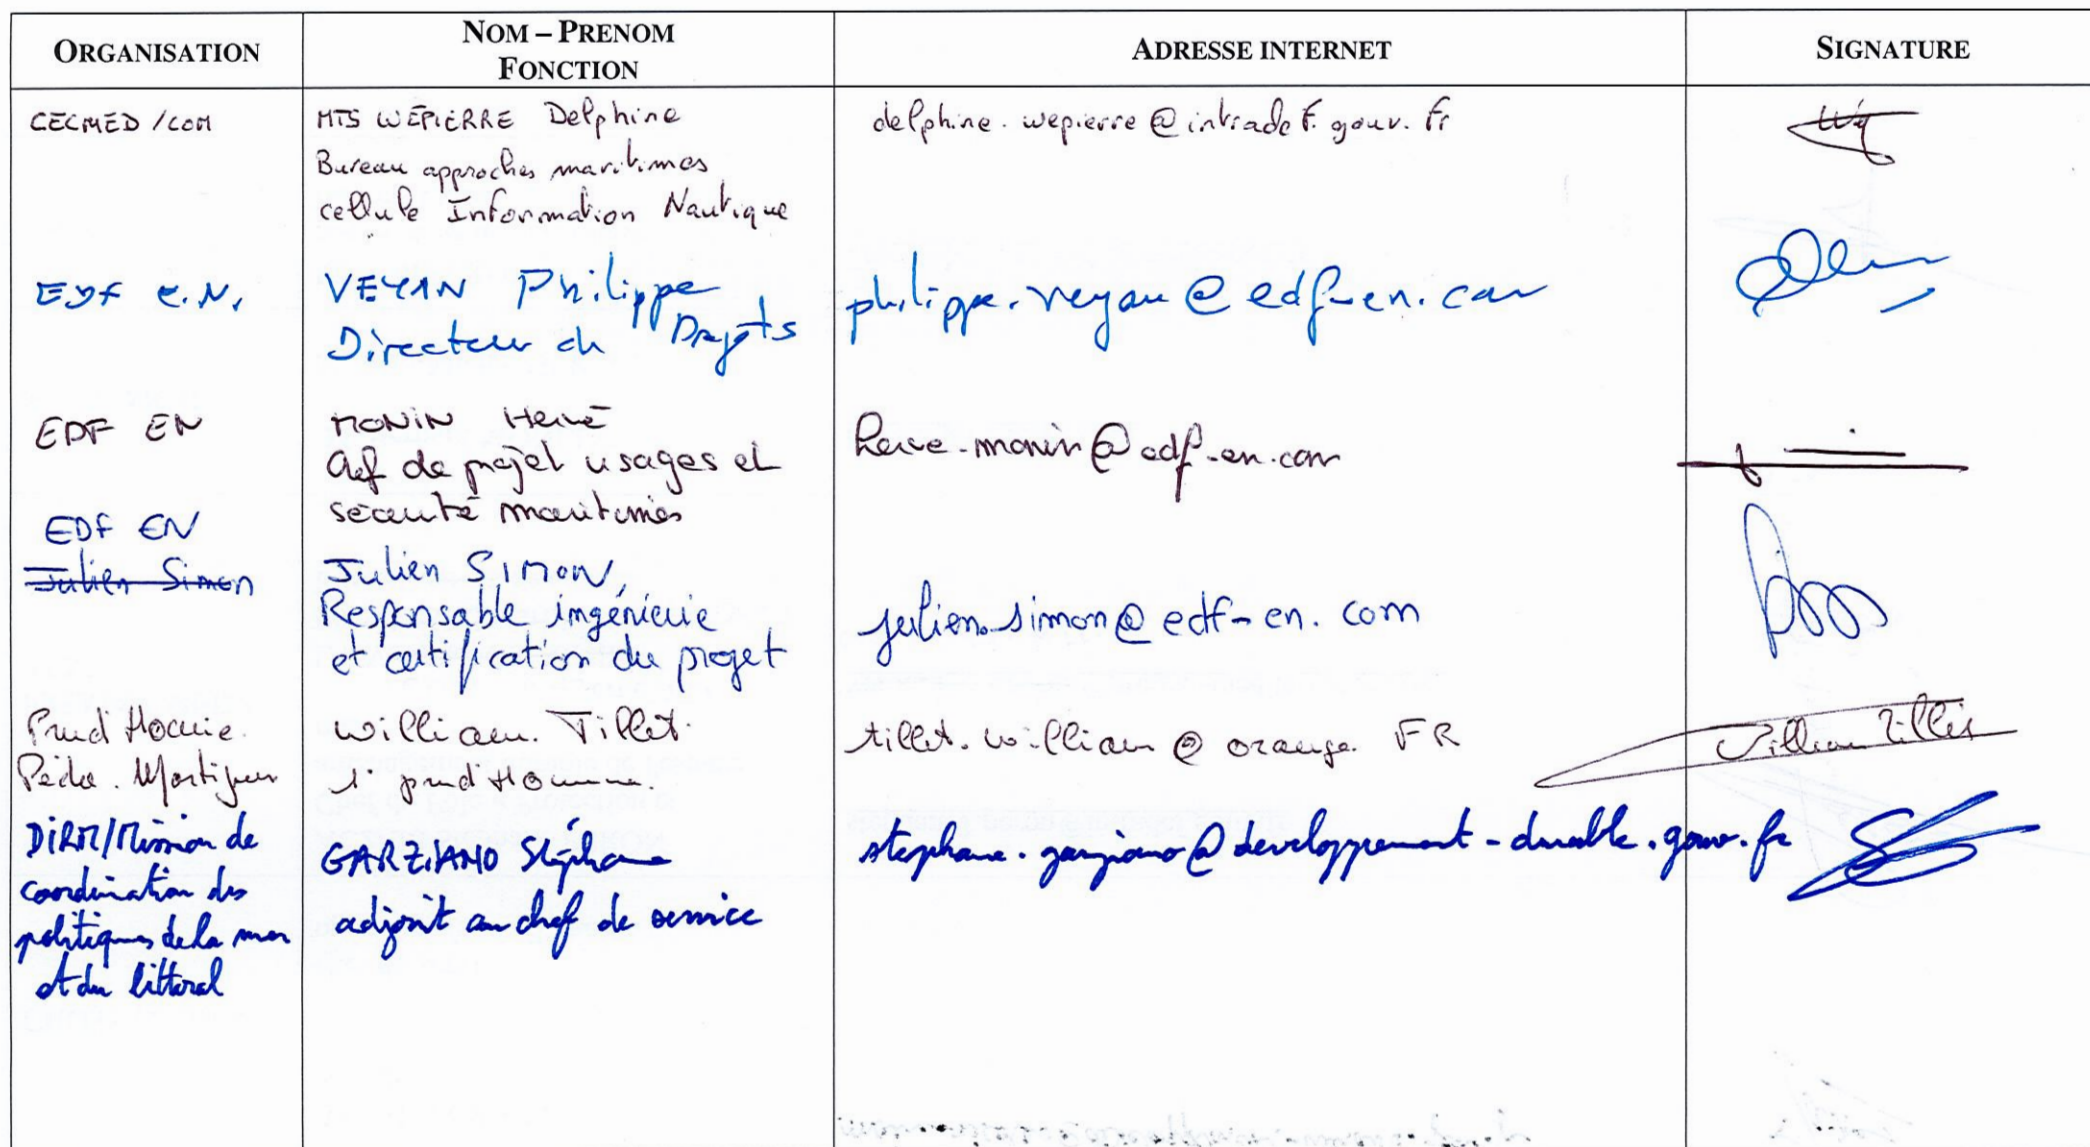 ORGANISATION
NOM – PRENOM
FONCTION
ADRESSE INTERNET
SIGNATURE
CECMED / COM
MTS WEPIERRE Delphine
Bureau approches maritimes
cellule Information Nautique
delphine.wepierre@intradef.gouv.fr
EDF E.N.
VEYAN Philippe
Directeur de Projets
philippe.veyan@edf-en.com
EDF EN
MONIN Hervé
Chef de projet usages et
sécurité maritimes
herve.monin@edf-en.com
EDF EN
Julien Simon
Julien SIMON,
Responsable ingénierie
et certification du projet
julien.simon@edf-en.com
Prud Homie.
Pêche. Martigues
William. Tillet.
1er prud Homme.
tillet.william@orange.FR
William Tillet
DIRM/Mission de
coordination des
politiques de la mer
et du littoral
GARZIANO Stéphane
adjoint au chef de service
stephane.garziano@developpement-durable.gouv.fr